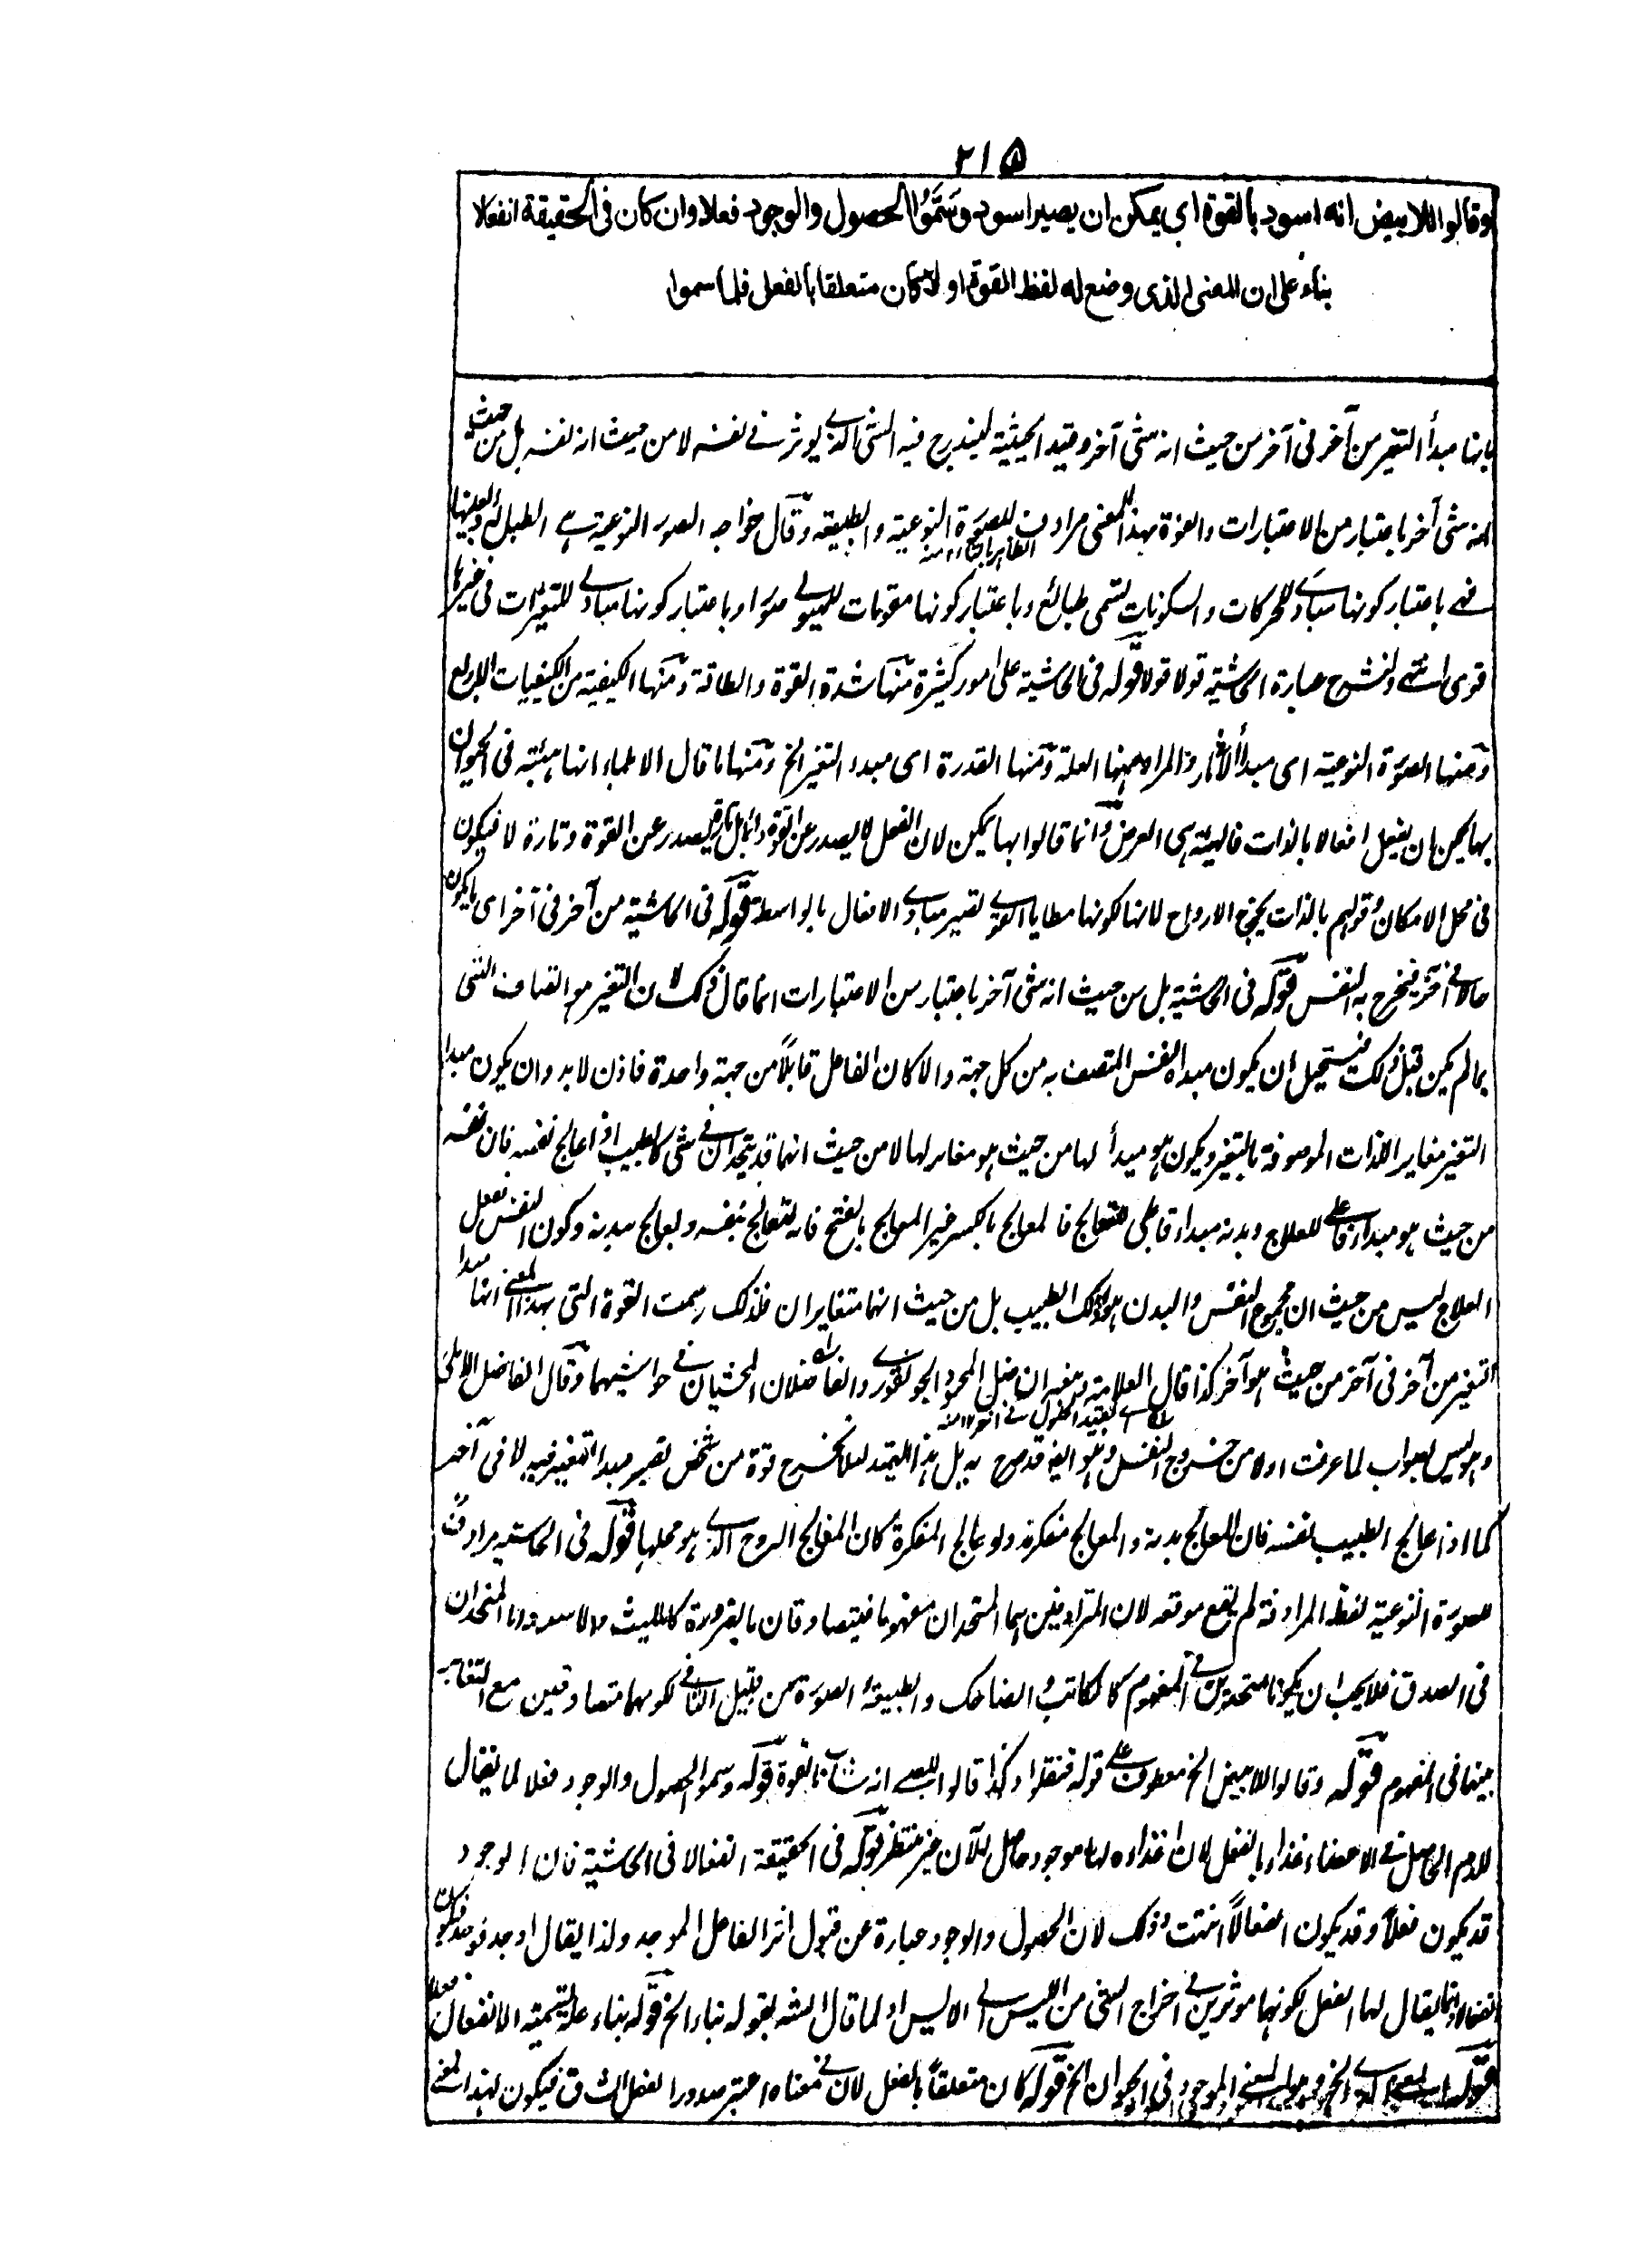 ٢١٥
وقالوا للابيض انه اسود بالقوة اي يمكن ان يصير اسود وسَمَّوُا الحصول والوجود فعلا وان كان فى الحقيقة انفعالا
بناء على ان المعنى الذى وضع له لفظ القوة اولا كان متعلقا بالفعل فلما سموا
بانها مبدأ التغير من آخر فى آخر من حيث انه شئ آخر وقيد الحيثية ليندرج فيه الشئ الذے يوثر فے نفسه لا من حيث انه نفسه بل من حيث
انه شئ آخر باعتبار من الاعتبارات والقوة بهذا المعنى مرادف للصورة النوعية والطبيعة وقال خواجه الصور النوعية هے الطبائع
فهے باعتبار كونها مبادى للحركات والسكونات تسمى طبائع وباعتبار كونها مقومات للهيولے صورا وباعتبار كونها مبادے للتغيرات فى غيرها
قوى انتهے ولنشرح عبارة الحاشية قولا قولا قوله فى الحاشية على امور كثيرة منها شدة القوة والطاقة ومنها الكيفية من الكيفيات الاربع
ومنها الصورة النوعية اى مبدأ الآثار والمراد منها العلة ومنها القدرة اى مبدء التغير الخ ومنها ما قال الاطباء انها هيئة فى الحيوان
بها يمكن ان يفعل افعالا بالذات فالهيئة هى العرض وانما قالوا بها يمكن لان الفعل لا يصدر عن القوة دائما بل تارة يصدر عن القوة وتارة لا فيكون
فى محل الامكان وقولهم بالذات يخرج الارواح لانها لكونها مطايا القوے تصير مبادے الافعال بالواسطة قوله فى الحاشية من آخر فى آخر اى ما يكون
حالا فے آخر فيخرج به النفس قوله فى الحاشية بل من حيث انه شئ آخر باعتبار من الاعتبارات انما قال ذلك لان التغير هو اتصاف الشئ
بما لم يكن قبل ذلك فيستحيل ان يكون مبداه نفس المتصف به من كل جهة والا كان الفاعل قابلاً من جهة واحدة فاذن لابد وان يكون مبدا
التغير مغاير الذات الموصوفة بالتغير ويكون هو مبدأ لها من حيث هو مغاير لها لا من حيث انهما قد يتحدان فے شئ كالطبيب اذا عالج نفسه فان نفسه
من حيث هو مبداء فاعلى للعلاج وبدنه مبداء قابلى للتعالج فالمعالج بالكسر غير المعالج بالفتح فانه يتعالج بنفسه ويعالج ببدنه وكون النفس تفعل
العلاج ليس من حيث ان مجموع النفس والبدن هو ذلك الطبيب بل من حيث انهما متغايران فلذلك رسمت القوة التى بهذا المعنے انها مبدا
التغير من آخر فى آخر من حيث هو آخر كذا قال العلامة والفاضلان المحشيان فے حواشيهما وقال الفاضل الاملى
وهو ليس بصواب لما عرفت اولا من خروج النفس
كما اذا عالج الطبيب نفسه فان المعالج بدنه والمعالج متفكرته ولو عالج المتفكرة كان المعالج الروح الذے هو محلها قوله فى الحاشية مرادفة
للصورة النوعية لفظ المرادفة لم يقع موقعه لان المترادفين هما المتحدان مفهوما فيتصادقان بالضرورة كالليث والاسد واما المتحدان
فى الصدق فلا يجب ان يكونا متحدين فے المفهوم كالكاتب والضاحك والطبيعة والصورة من قبيل الثانے لكونهما متصادقين مع التغاير
بينهما فى المفهوم قوله وقالوا للابيض الخ معطوف على قوله فنقلوا وكذا قالوا للصبے انه شاب بالقوة قوله وسموا الحصول والوجود فعلا كما يقال
للدم الحاصل فے الاعضاء غذاء بالفعل لان اغذاءه لها موجود حاصل الآن غير منتظر قوله فى الحقيقة انفعالا فى الحاشية فان الوجود
قد يكون فعلاً وقد يكون انفعالاً انتهت وذلك لان الحصول والوجود عبارة عن قبول اثر الفاعل الموجد ولذا يقال اوجد فوجد فيكون
انفعالا وانما يقال لها الفعل لكونهما موثرين فے اخراج الشئ من الليس الے الايس او لما قال الشه بقوله بناء الخ قوله بناء علے تسمية الانفعال فعلا
قوله ان المعنے الذے الخ وهو المعنے الموجود فى الحيوان الخ قوله كان متعلقاً بالفعل لان فے معناه اعتبر صدور الفعل الشاق فيكون لهذا المعنے